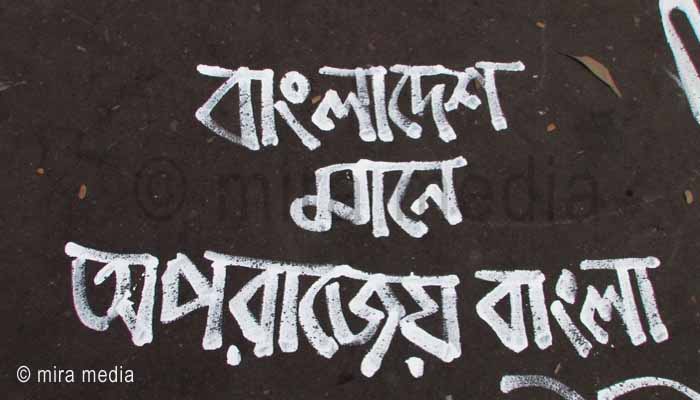 বাংলাদেশ
মানে
অপরাজেয় বাংলা
© mira media
© mira media